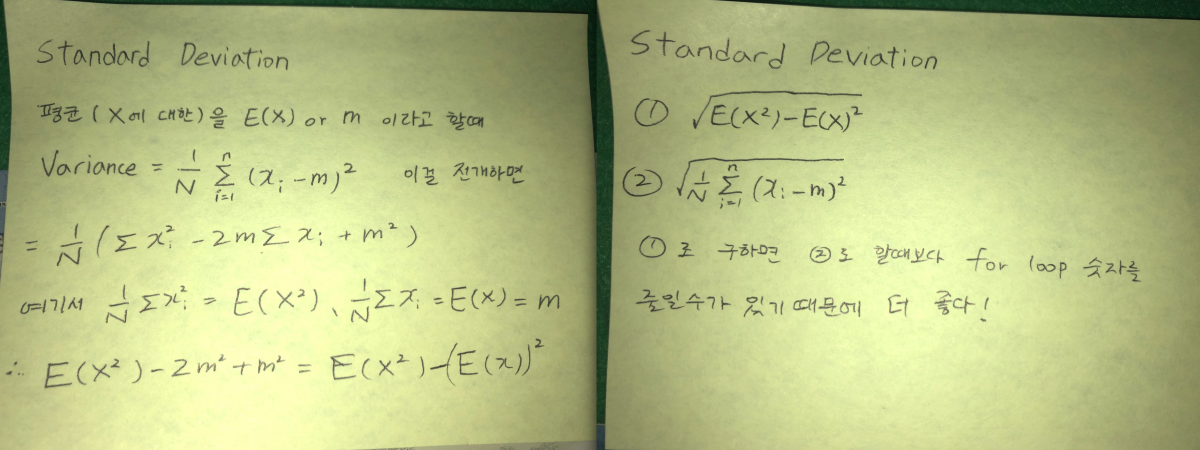 Standard Deviation
평균 (X에 대한)을 E(X) or m 이라고 할때
Variance = 1/N Σ_{i=1}^{n} (x_i - m)² 이걸 전개하면
= 1/N (Σ x_i² - 2m Σ x_i + m²)
여기서 1/N Σx_i² = E(X²)、1/N Σx_i = E(X) = m
∴ E(X²) - 2m² + m² = E(X²) - (E(x))²
Standard Deviation
① √(E(X²) - E(X)²)
② √(1/N Σ_{i=1}^{n} (x_i - m)²)
①로 구하면 ②로 할때보다 for loop 숫자를
줄일수가 있기 때문에 더 좋다!